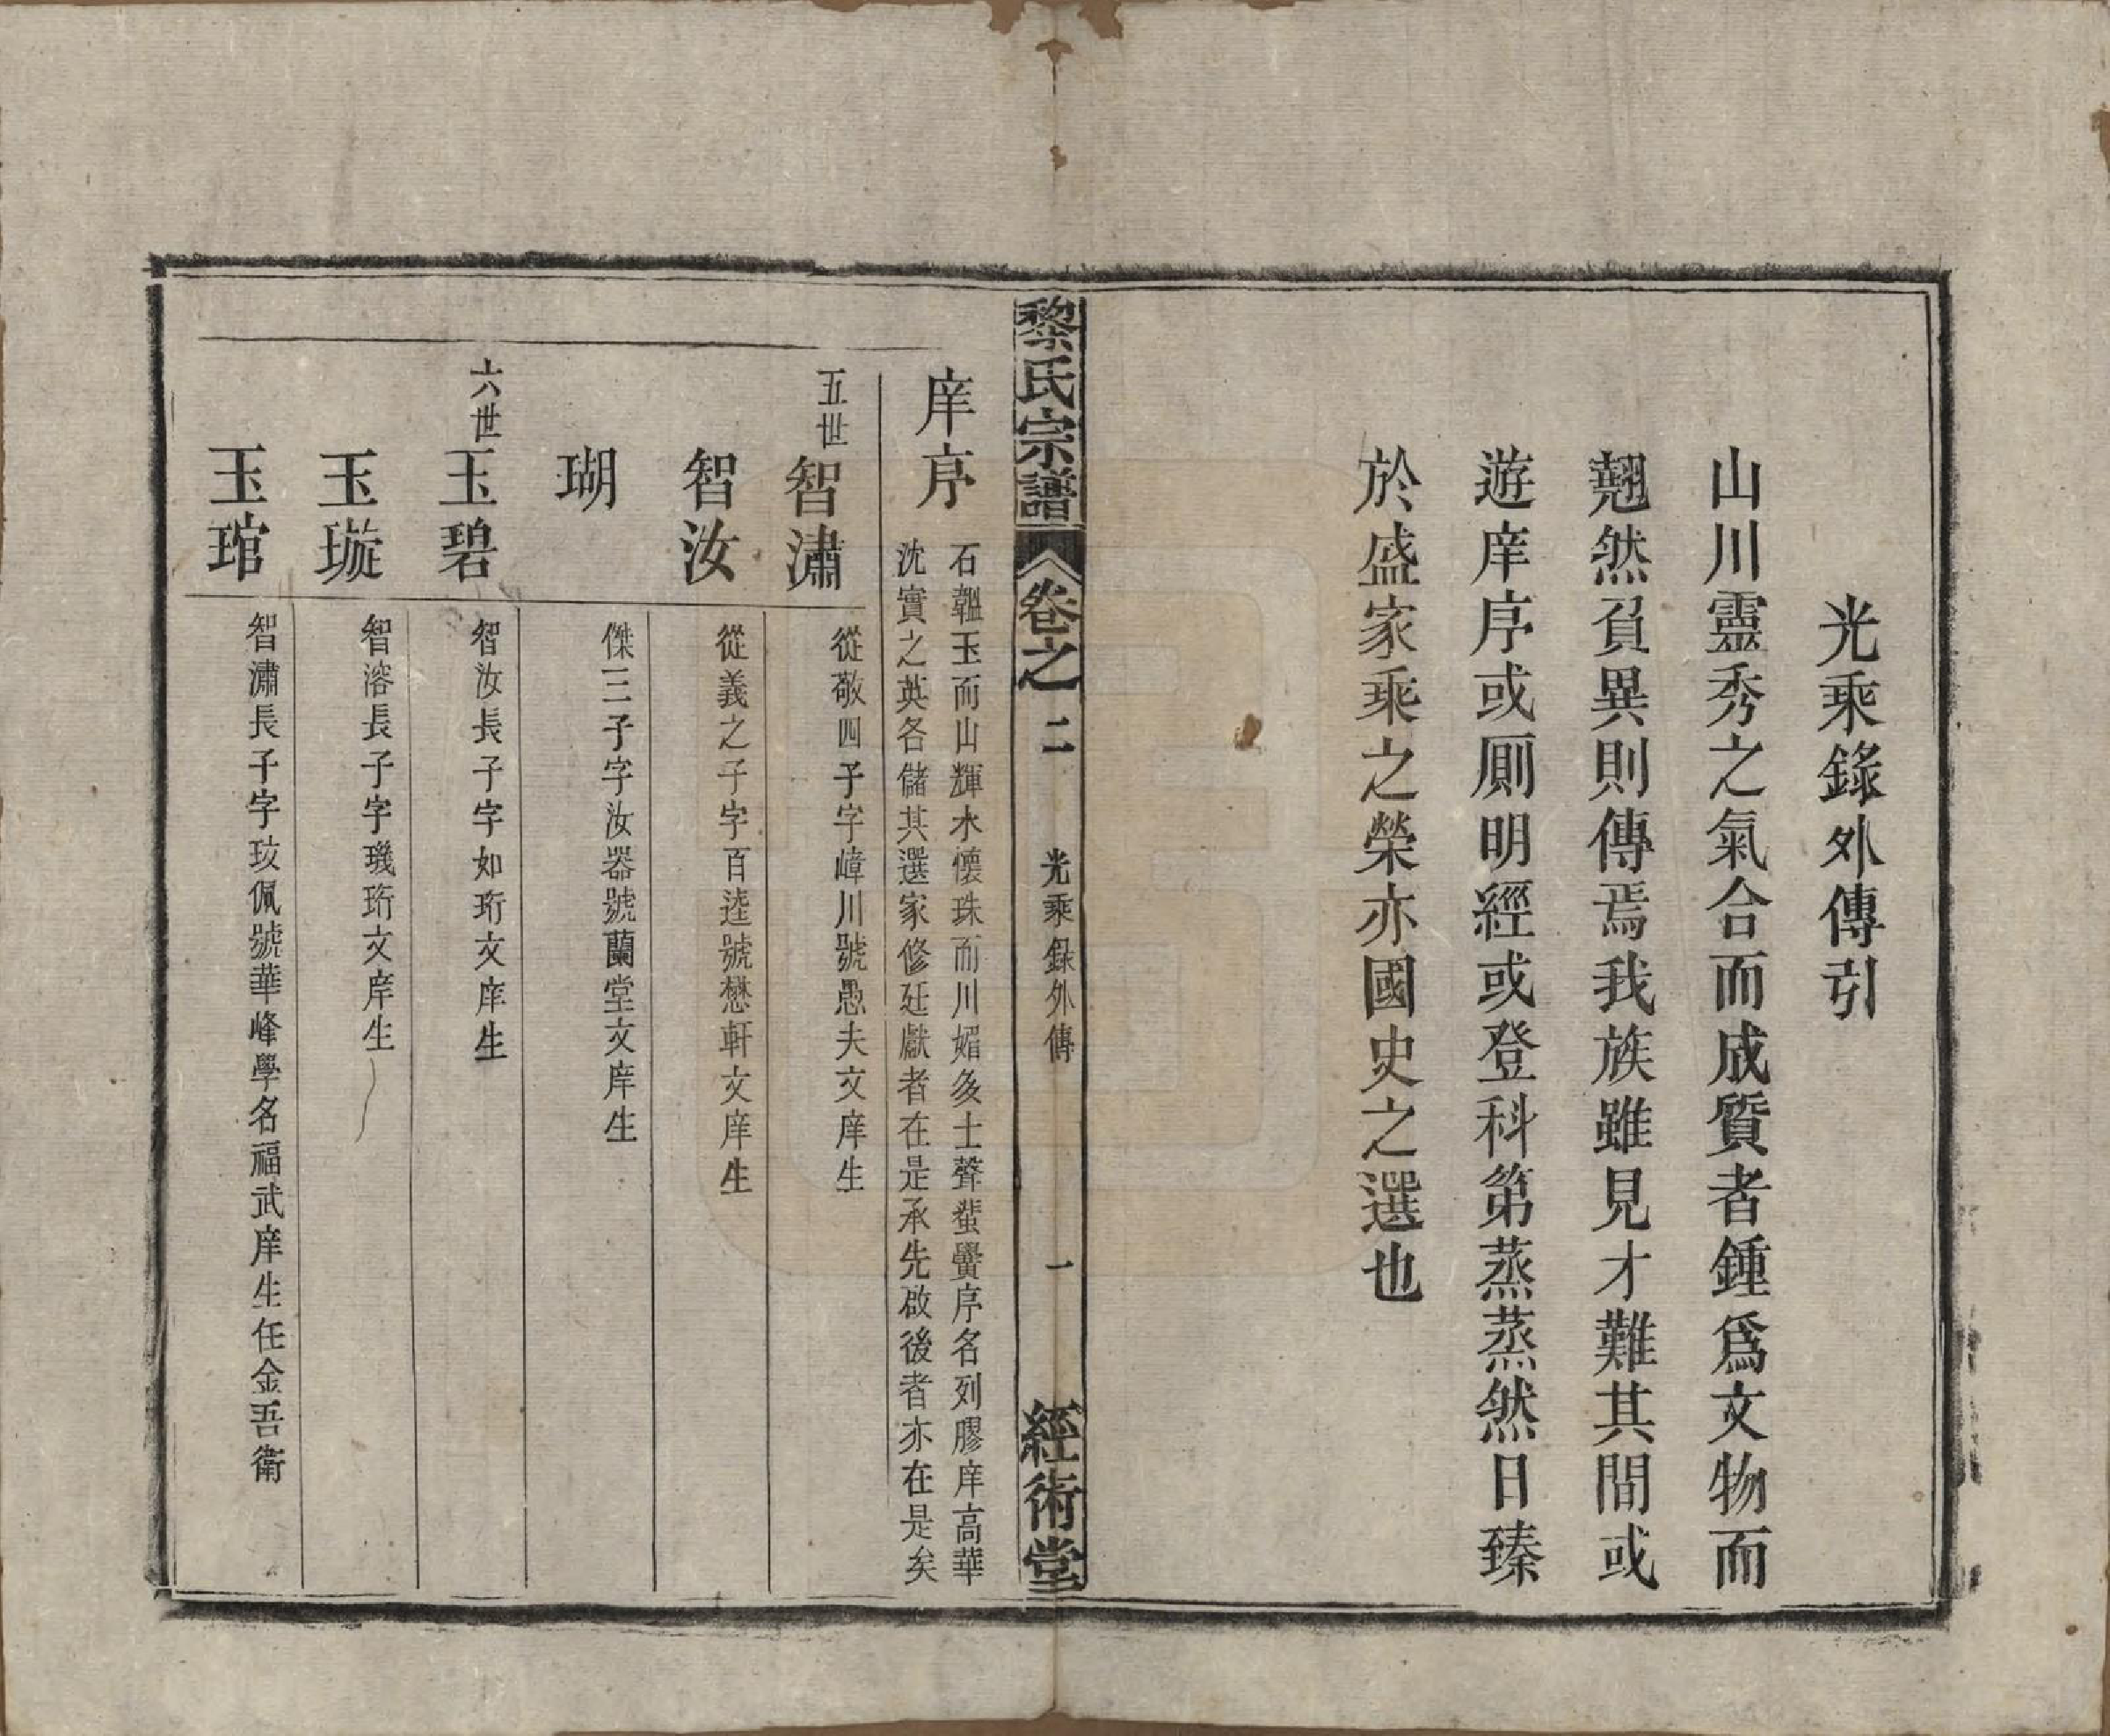 光乘錄外傳引
山川靈秀之氣合而成質者鍾爲文物而
翹然負異則傳焉我族雖見才難其間或
遊庠序或厠明經或登科第蒸蒸然日臻
於盛家乘之榮亦國史之選也
黎氏宗譜
卷之二
光乘錄外傳
一
經術堂
庠序
石韞玉而山輝水懷珠而川媚多士聲蜚黌序名列膠庠高華
沈實之英各儲其選家修廷獻者在是承先啟後者亦在是矣
五世
智潚
從敬四子字嶂川號愚夫文庠生
智汝
從義之子字百逵號懋軒文庠生
瑚
傑三子字汝器號蘭堂文庠生
六世
玉碧
智汝長子字如珩文庠生
玉璇
智溶長子字璣珩文庠生
玉琯
智潚長子字玟佩號華峰學名福武庠生任金吾衛